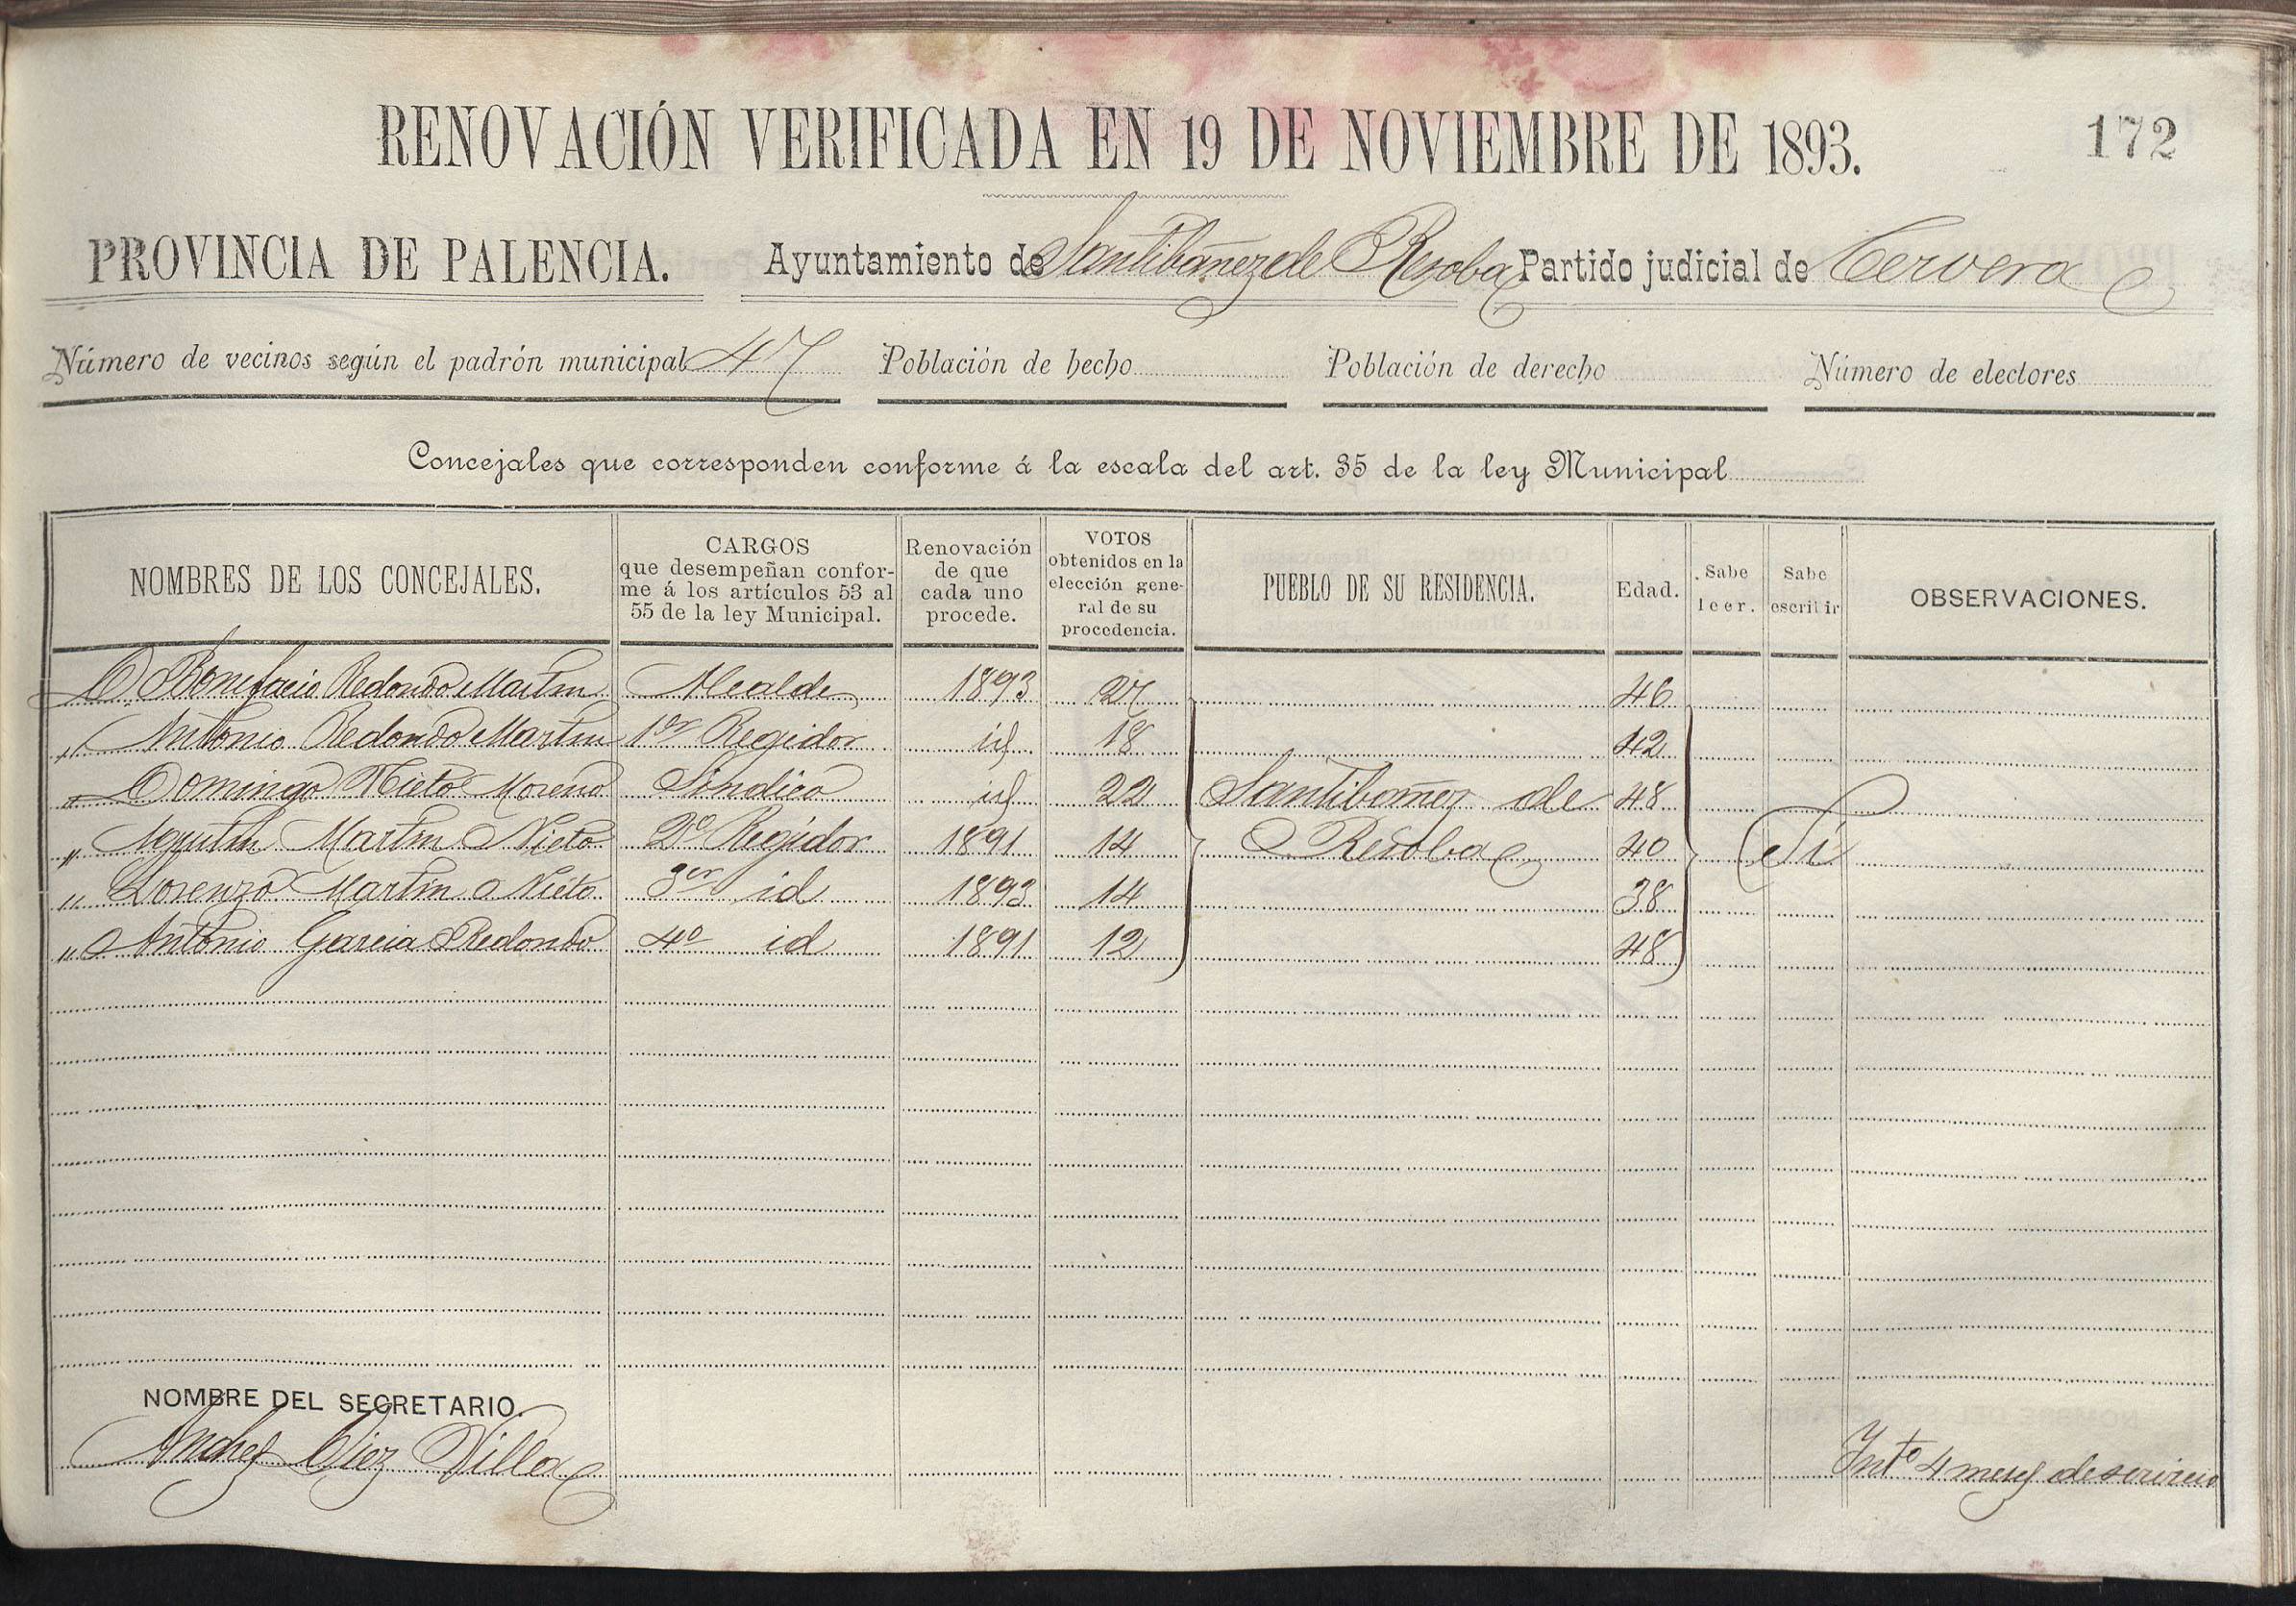 RENOVACIÓN VERIFICADA EN 19 DE NOVIEMBRE DE 1893. 172
PROVINCIA DE PALENCIA. Ayuntamiento de Santibañez de Resoba Partido judicial de Cervera
Número de vecinos según el padrón municipal 47 Población de hecho Población de derecho Número de electores
Concejales que corresponden conforme á la escala del art. 35 de la ley Municipal
NOMBRES DE LOS CONCEJALES. CARGOS que desempeñan conforme á los artículos 53 al 55 de la ley Municipal. Renovación de que cada uno procede. VOTOS obtenidos en la elección general de su procedencia. PUEBLO DE SU RESIDENCIA. Edad. Sabe leer. Sabe escribir OBSERVACIONES.
D Bonifacio Redondo Martin Alcalde 1893 27 46
" Antonio Redondo Martin 1er Regidor id 18 42
" Domingo Nieto Moreno Sindico id 22 Santibañez de 48
" Agustin Martin Nieto 2º Regidor 1891 14 Resoba 40 Si
" Lorenzo Martin Nieto 3er id 1893 14 38
" Antonio Garcia Redondo 4º id 1891 12 48
NOMBRE DEL SECRETARIO.
Andres Diez Villa Intº 4 meses de servicio